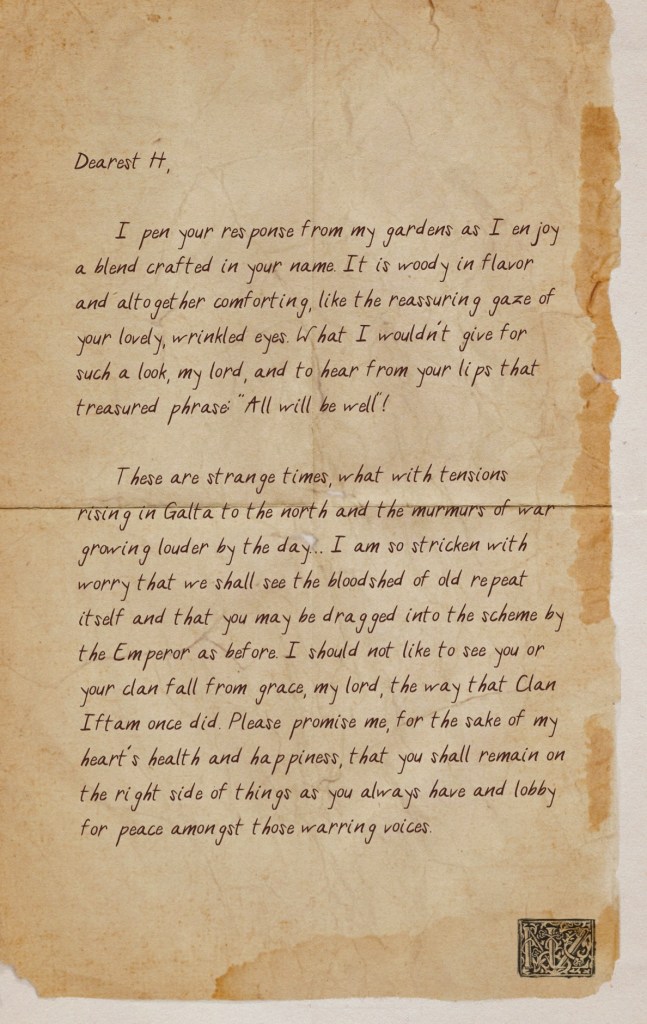 Dearest H,
I pen your response from my gardens as I enjoy
a blend crafted in your name. It is woody in flavor
and altogether comforting, like the reassuring gaze of
your lovely, wrinkled eyes. What I wouldn't give for
such a look, my lord, and to hear from your lips that
treasured phrase: "All will be well"!
These are strange times, what with tensions
rising in Galta to the north and the murmurs of war
growing louder by the day... I am so stricken with
worry that we shall see the bloodshed of old repeat
itself and that you may be dragged into the scheme by
the Emperor as before. I should not like to see you or
your clan fall from grace, my lord, the way that Clan
Iftam once did. Please promise me, for the sake of my
heart's health and happiness, that you shall remain on
the right side of things as you always have and lobby
for peace amongst those warring voices.